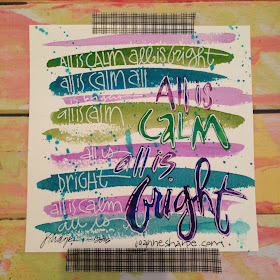 All is CALM all is bright
all is calm all
All is
all is calm
CALM
all is
all is
bright
bright
all is calm
all is
joannesharpe.com